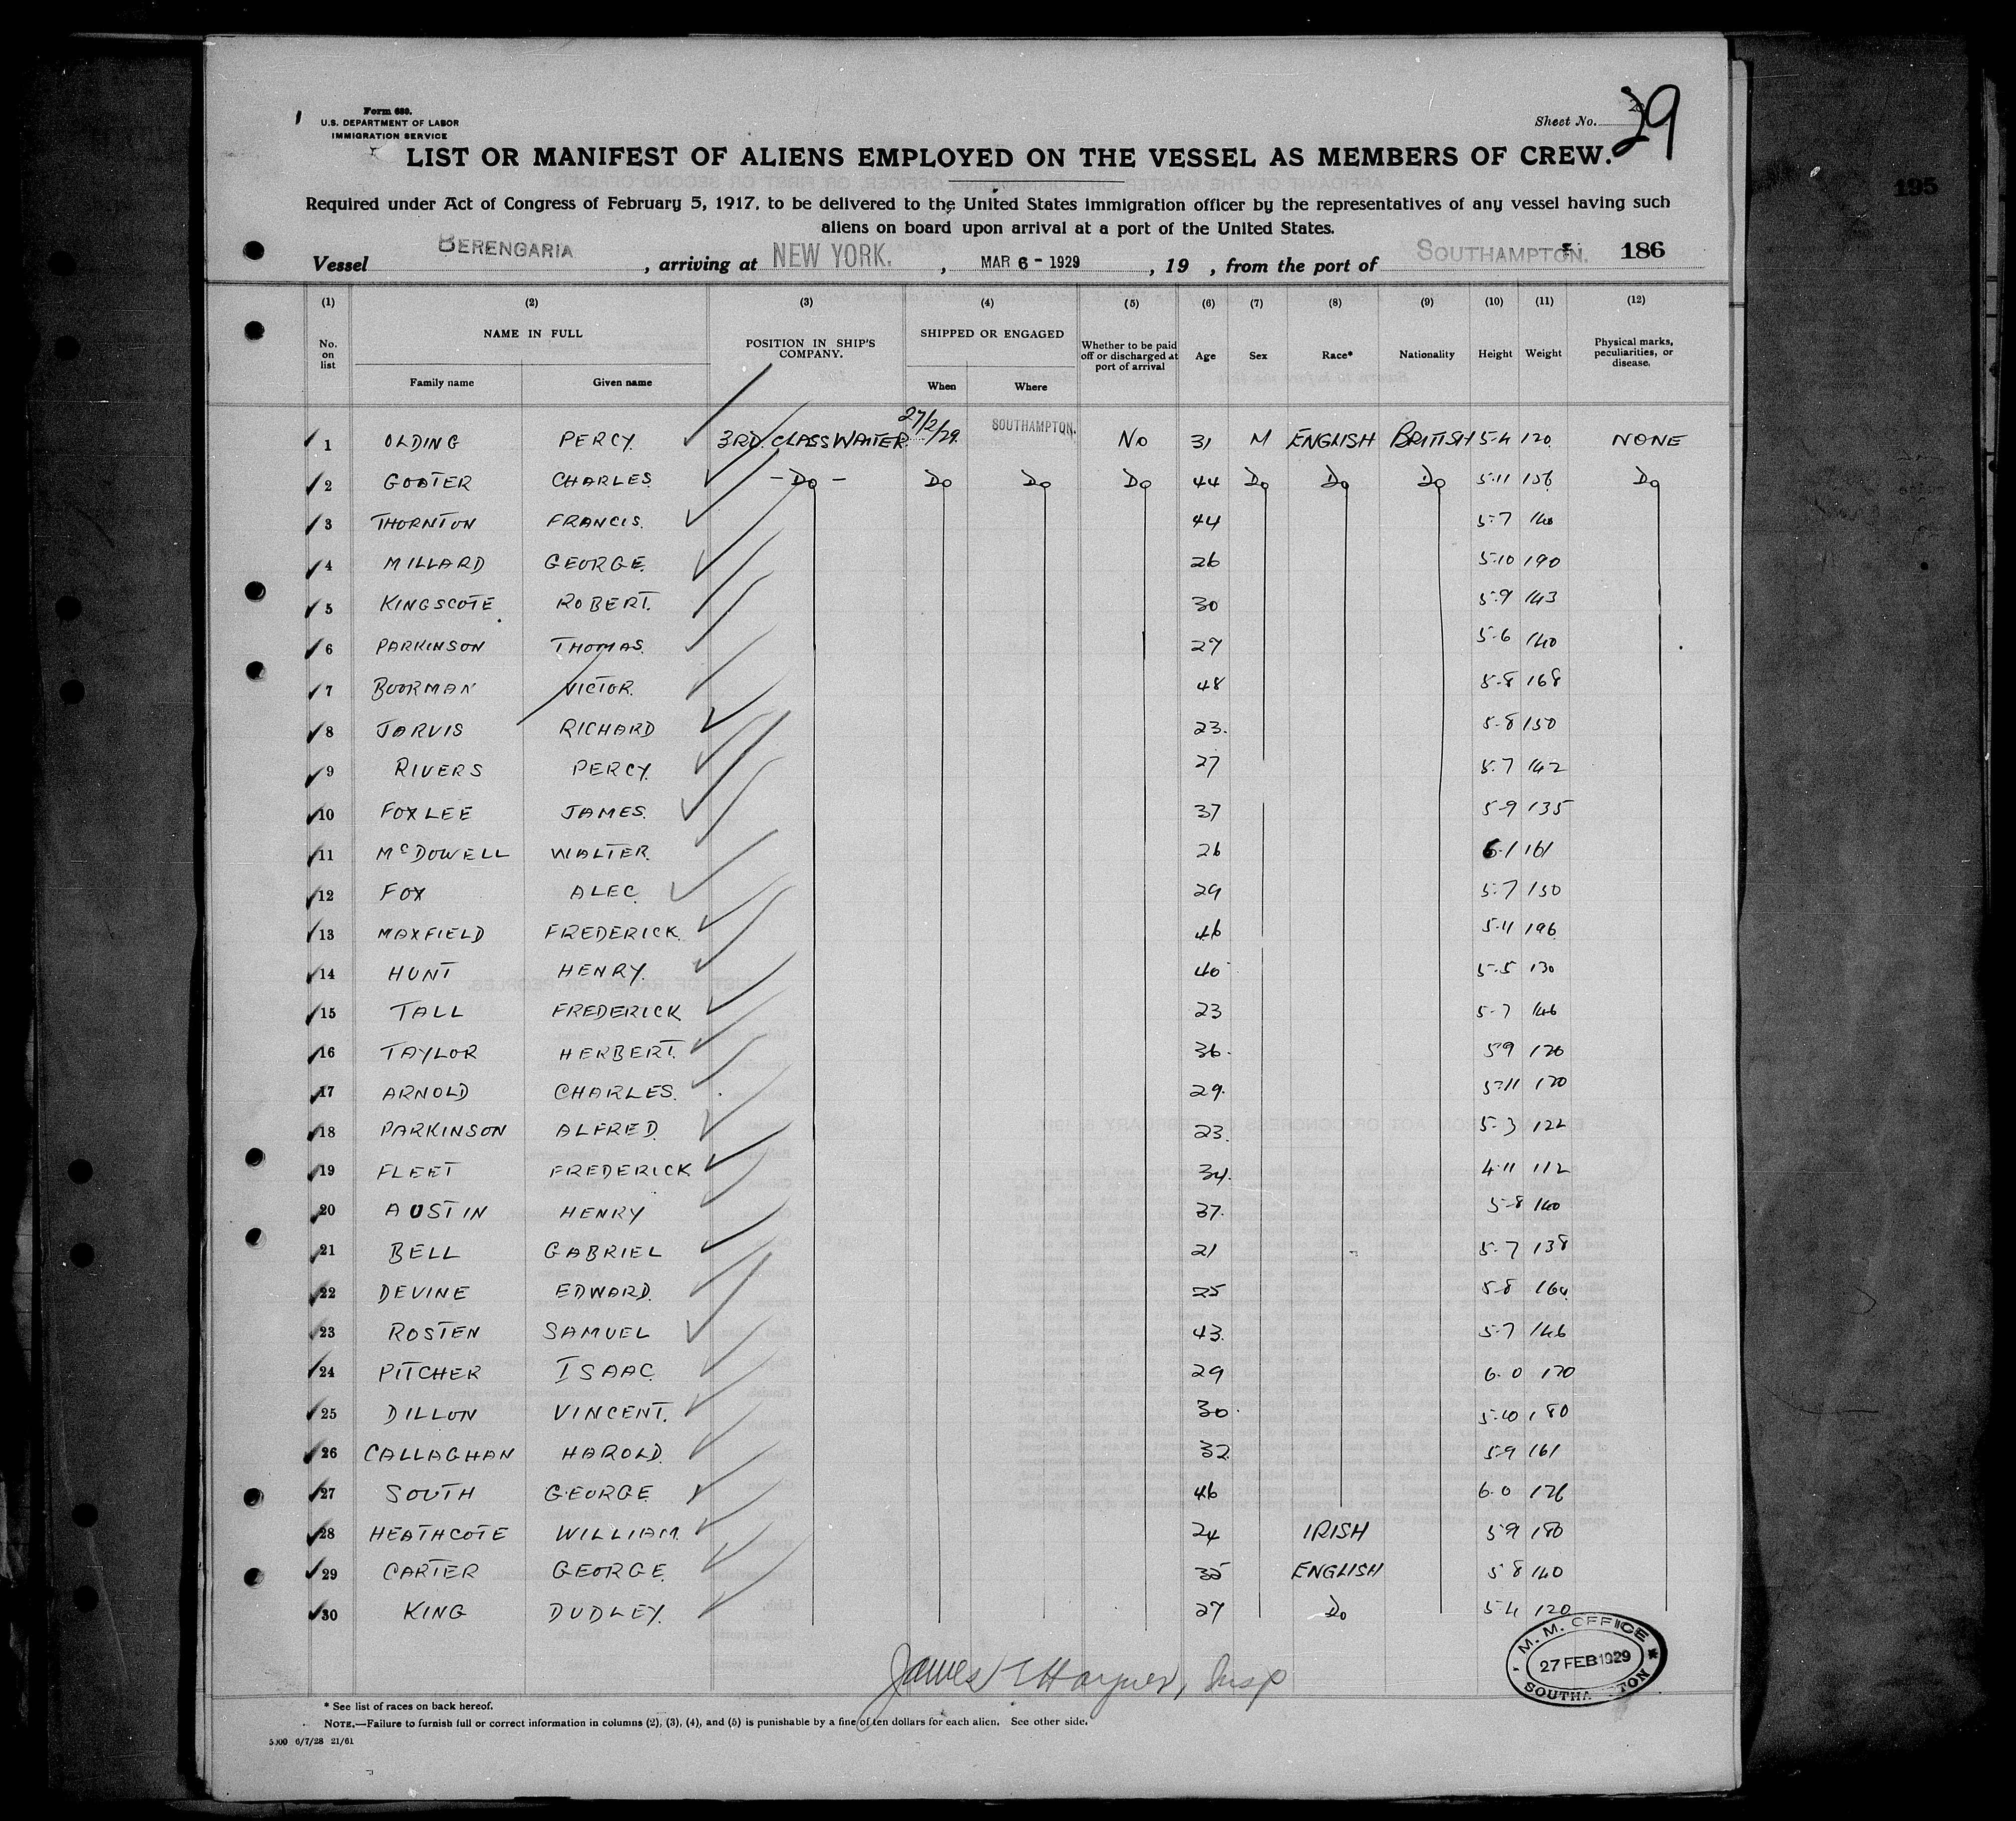 Form 689.
U.S. DEPARTMENT OF LABOR
IMMIGRATION SERVICE
Sheet No. 29
LIST OR MANIFEST OF ALIENS EMPLOYED ON THE VESSEL AS MEMBERS OF CREW.
Required under Act of Congress of February 5, 1917, to be delivered to the United States immigration officer by the representatives of any vessel having such
aliens on board upon arrival at a port of the United States.
195
Vessel BERENGARIA, arriving at NEW YORK., MAR 6 - 1929, 19 , from the port of SOUTHAMPTON. 186
(1) (2) (3) (4) (5) (6) (7) (8) (9) (10) (11) (12)
No. on list NAME IN FULL Family name Given name POSITION IN SHIP'S COMPANY. SHIPPED OR ENGAGED When Where Whether to be paid off or discharged at port of arrival Age Sex Race* Nationality Height Weight Physical marks, peculiarities, or disease.
1 OLDING PERCY. 3RD. CLASS WAITER. 27/2/29. SOUTHAMPTON. NO 31 M ENGLISH BRITISH 5-4 120 NONE
2 GOATER CHARLES. - Do - Do Do Do 44 Do Do Do 5-11 156 Do
3 THORNTON FRANCIS. 44 5-7 140
4 MILLARD GEORGE. 26 5-10 190
5 KINGSCOTE ROBERT. 30 5-9 143
6 PARKINSON THOMAS. 27 5-6 140
7 BOORMAN VICTOR. 48 5-8 168
8 JARVIS RICHARD 23. 5-8 150
9 RIVERS PERCY. 27 5-7 142
10 FOXLEE JAMES. 37 5-9 135
11 McDOWELL WALTER. 26 6-1 161
12 FOX ALEC. 29 5-7 150
13 MAXFIELD FREDERICK. 46 5-11 196
14 HUNT HENRY. 40 5-5 130
15 TALL FREDERICK 23 5-7 146
16 TAYLOR HERBERT. 36. 5-9
17 ARNOLD CHARLES. 29. 5-11
18 PARKINSON ALFRED. 23. 5-3 122
19 FLEET FREDERICK 34. 4-11 112
20 AUSTIN HENRY 37. 5-8 140
21 BELL GABRIEL 21 5-7 138
22 DEVINE EDWARD. 25 5-8 164
23 ROSTEN SAMUEL 43. 5-7 146
24 PITCHER ISAAC. 29 6-0 170
25 DILLON VINCENT. 30. 5-10 180
26 CALLAGHAN HAROLD. 32 5-9 161
27 SOUTH GEORGE 46 6-0 176
28 HEATHCOTE WILLIAM. 24 IRISH 5-9 180
29 CARTER GEORGE. 35 ENGLISH 5 8 140
30 KING DUDLEY. 27 Do 5-4 120
M. M. OFFICE
27 FEB 1929
SOUTHAMPTON
James Insp
* See list of races on back hereof.
NOTE.—Failure to furnish full or correct information in columns (2), (3), (4), and (5) is punishable by a fine of ten dollars for each alien. See other side.
5000 6/7/28 21/61